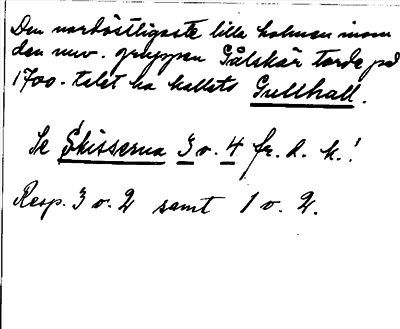 Den nordöstligaste lilla holmen inom
den nuv. gruppen Gålskär torde på
1700-talet ha kallats Gullhall.
Se Skisserna 3 o. 4 fr. d. k.!
Resp. 3 o. 2 samt 1 o. 2.